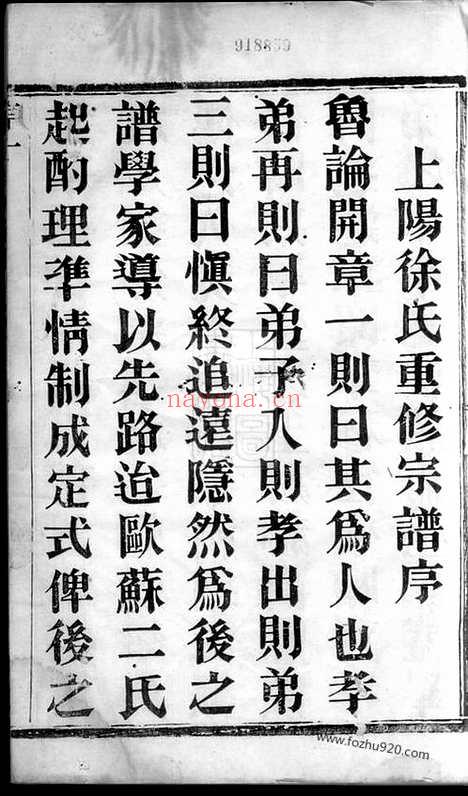 918809
上陽徐氏重修宗譜序
魯論開章一則曰其爲人也孝
弟再則曰弟子入則孝出則弟
三則曰愼終追遠隱然爲後之
譜學家導以先路迨歐蘇二氏
起酌理準情制成定式俾後之
nayona.cn
www.fozhu920.com